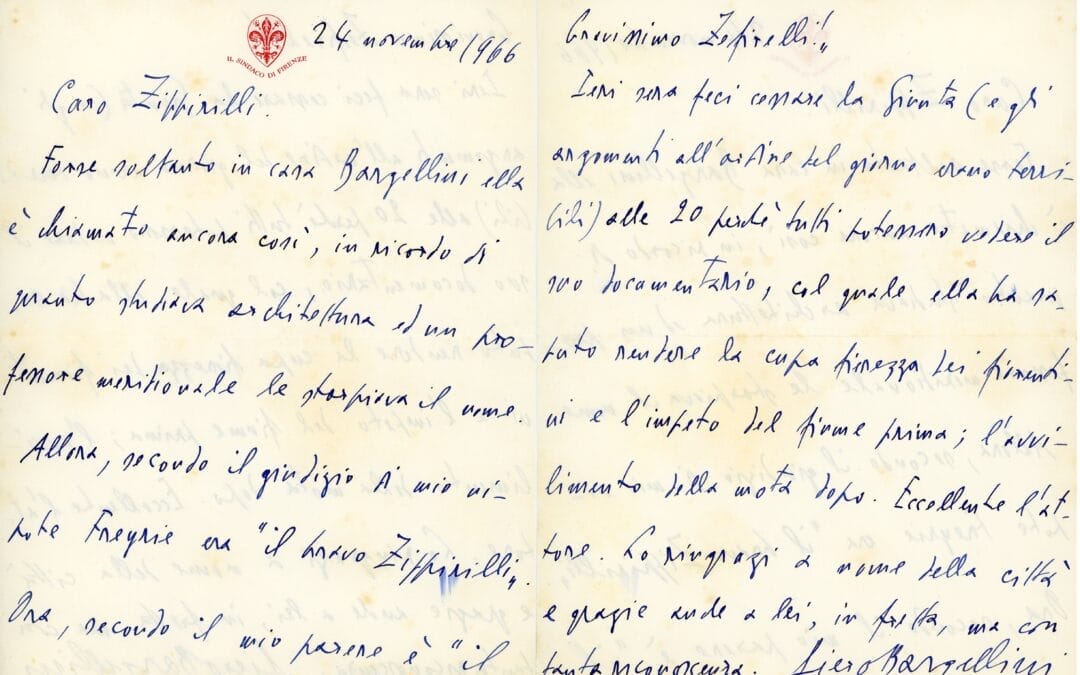 IL SINDACO DI FIRENZE
24 novembre 1966
Caro Zippirilli.
Forse soltanto in casa Bargellini ella
è chiamato ancora così, in ricordo di
quanto studiava architettura ed un pro-
fessore meridionale le storpiava il nome.
Allora, secondo il giudizio di mio ni-
pote Freyrie era "il bravo Zippirilli„.
Ora, secondo il mio parere è "il
Bravissimo Zefirelli!„
Ieri sera feci cessare la Giunta (e gli
argomenti all'ordine del giorno erano terri-
bili) alle 20 perchè tutti potessero vedere il
suo documentario, col quale ella ha sa-
puto rendere la cupa fierezza dei fiorenti-
ni e l'impeto del fiume prima; l'avvi-
limento della mota dopo. Eccellente l'at-
tore. Lo ringrazi a nome della città
e grazie anche a lei, in fretta, ma con
tanta riconoscenza. Piero Bargellini